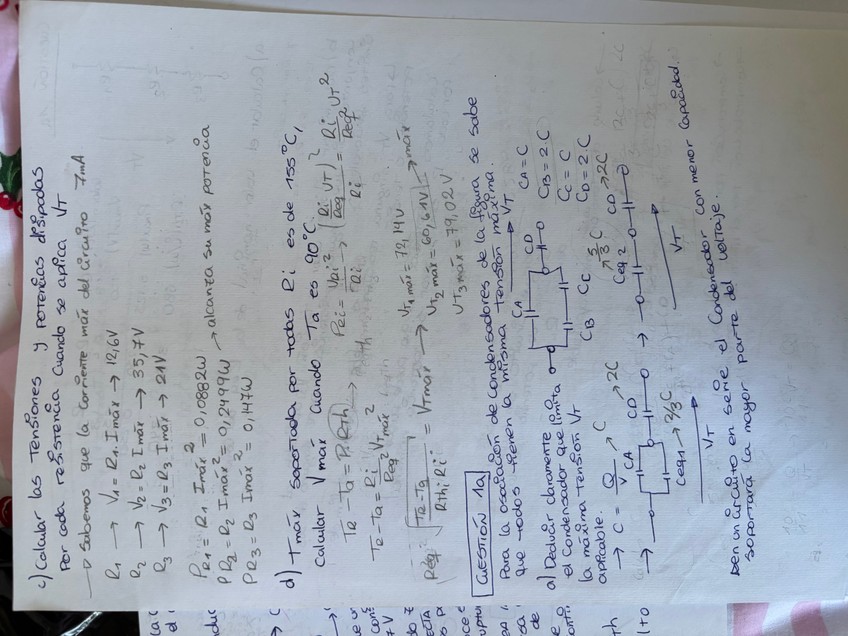 c) Calcular las tensiones y potencias disipadas
por cada resistencia cuando se aplica VT
→ Sabemos que la corriente máx del circuito 7mA
R1 → V1 = R1. Imáx → 12,6V
R2 → V2 = R2 Imáx → 35,7V
R3 → V3 = R3 Imáx → 21V
PR1 = R1 Imáx² = 0,0882W
PR2 = R2 Imáx² = 0,2499W → alcanza su máx potencia
PR3 = R3 Imáx² = 0,147W
d) Tmáx soportada por todas Ri es de 155°C,
Calcular Vmáx cuando Ta es 90°C.
TR - Ta = Pi Rth → Pei = VRi²/Ri → (Ri/Req VT)²/Ri = Ri/Req² VT²
TR - Ta = Ri/Req² VTmáx²
Req √(TR-Ta/Rthi Ri) = VTmáx → VT1máx = 72,14V
VT2máx = 60,61V → máx
VT3máx = 79,02V
CUESTIÓN 1a
Para la asociación de condensadores de la figura se sabe
que todos tienen la misma tensión máxima.
a) Deducir claramente
el condensador que limita
la máxima tensión VT
aplicable.
VT
CA CD
CB CC
CA = C
CB = 2C
CC = C
CD = 2C
→ C = Q/V
CA → C
CD → 2C
Ceq1 → 2/3C
VT
Ceq2 → 5/3C
CD → 2C
VT
en un circuito en serie el condensador con menor capacidad
soportará la mayor parte del voltaje.